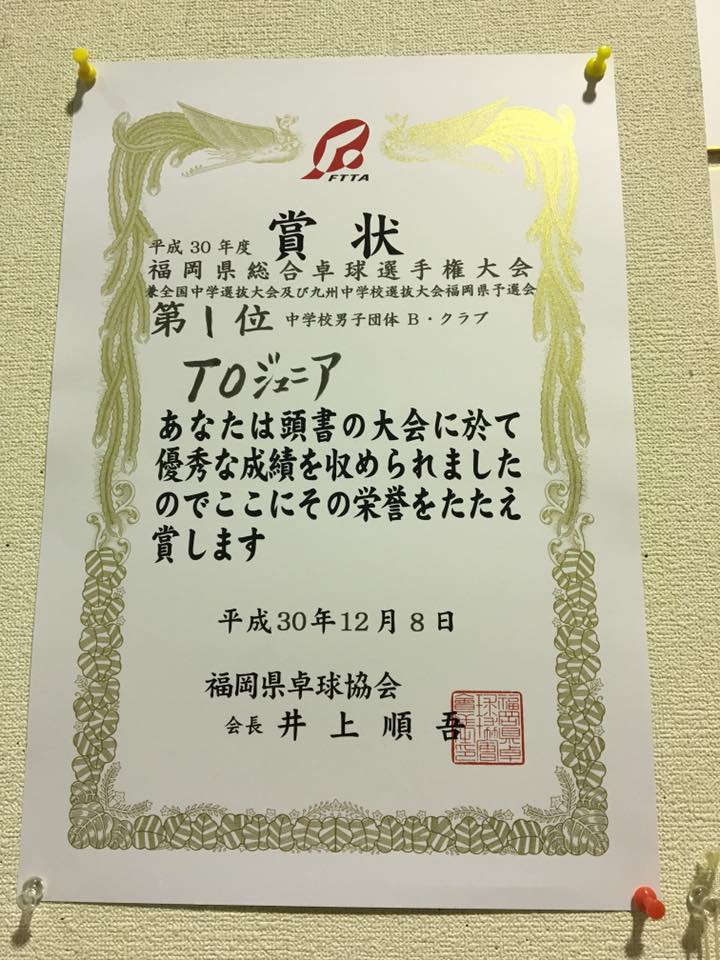 FTTA
賞状
平成30年度
福岡県総合卓球選手権大会
兼全国中学選抜大会及び九州中学校選抜大会福岡県予選会
第1位 中学校男子団体 B・クラブ
TOジュニア
あなたは頭書の大会に於て
優秀な成績を収められました
のでここにその栄誉をたたえ
賞します
平成30年12月8日
福岡県卓球協会
会長 井上順吾
福岡県卓球協會會長之印